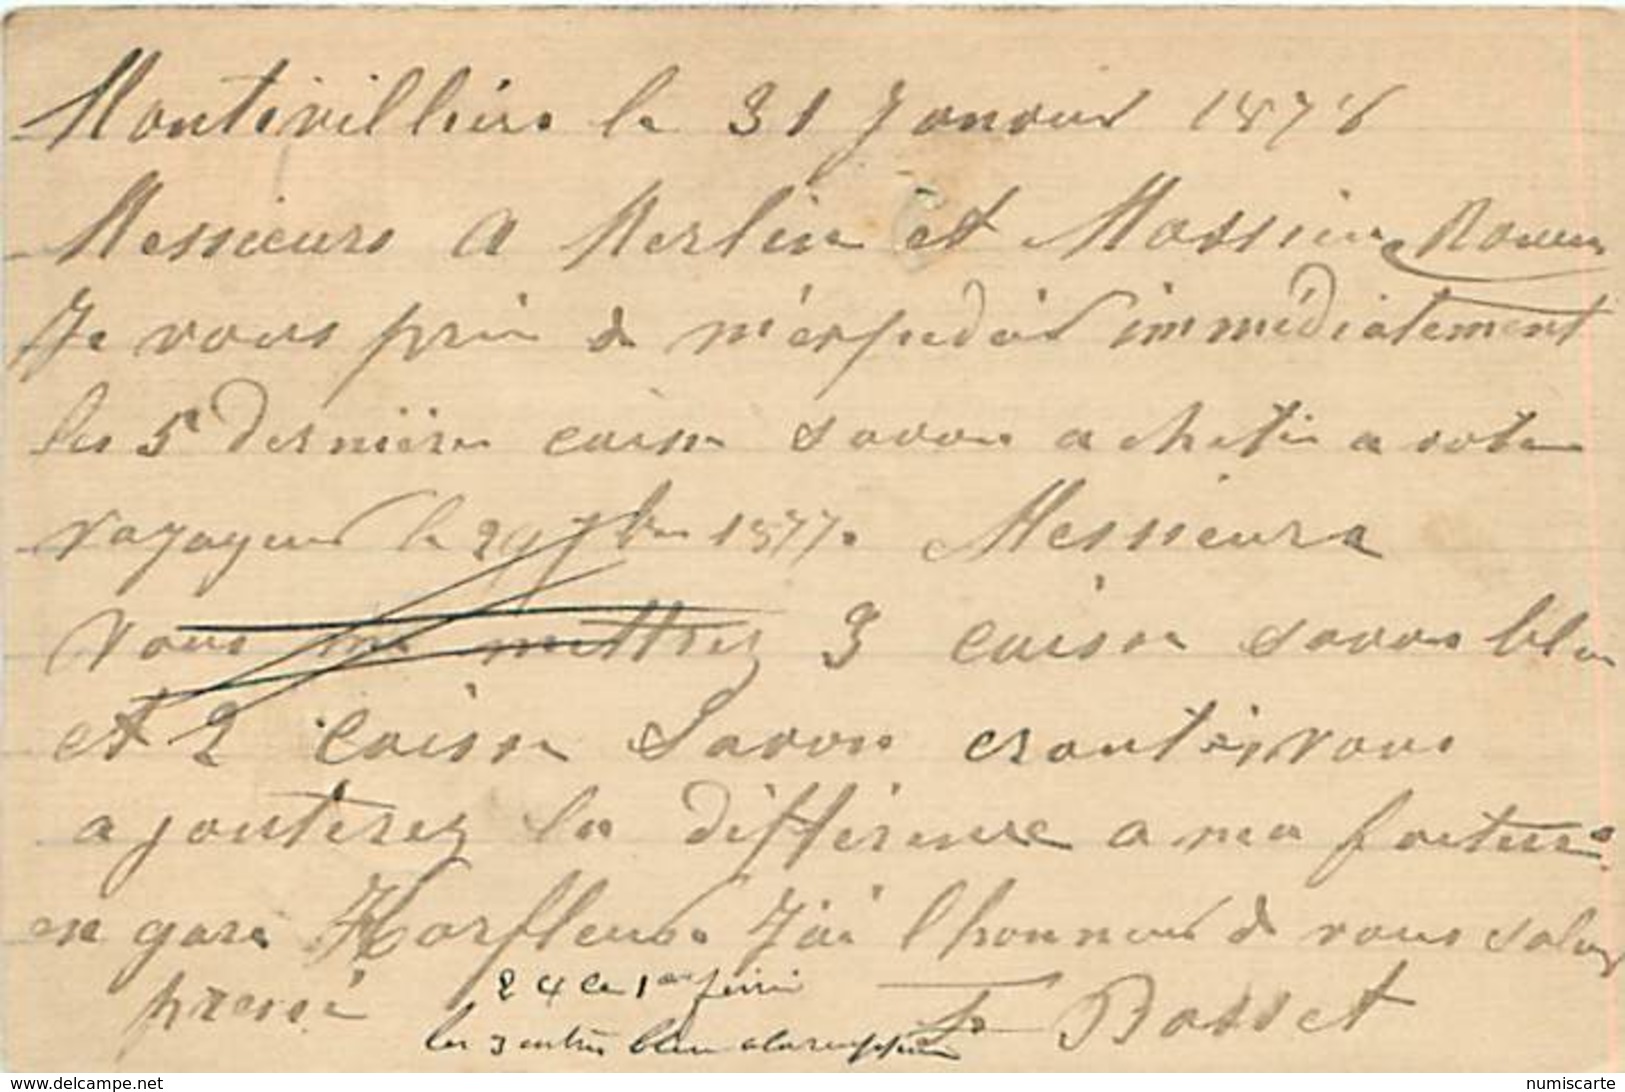 Montivilliers le 31 Janvier 1878
Messieurs A Merlin et Massieu Rouen
Je vous prie de m'expédier immédiatement
les 5 dernière caisse savon acheter a votre
voyageur le 29 7bre 1877. Messieurs
vous me mettrez 3 caisse savon bleu
et 2 caisse Savon vous
ajouterez la différence a ma facture
en gare Harfleur. J'ai l'honneur de vous saluer
pressé
F Bosset
2 le 1er février
les 3 bleu
www.delcampe.net
numiscarte